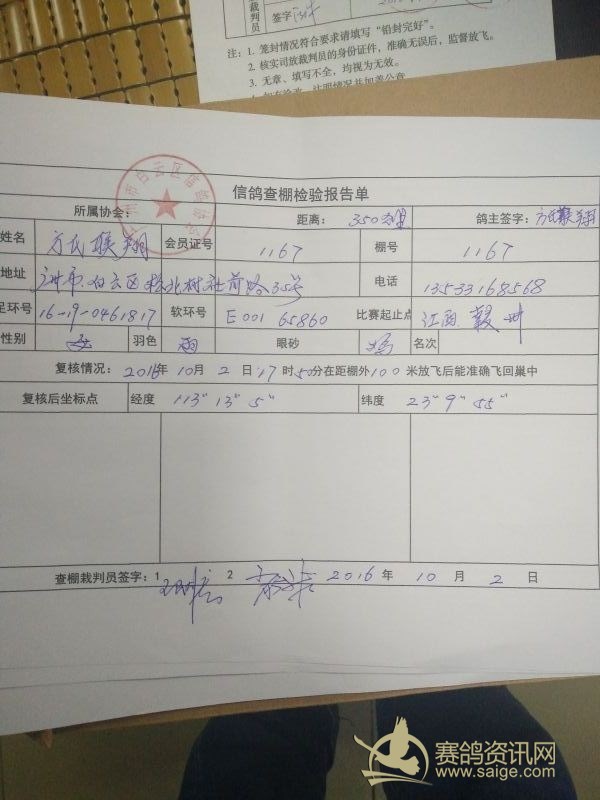 裁判员
签字
注：1. 笼封情况符合要求请填写“铅封完好”。
2. 核实司放裁判员的身份证件，准确无误后，监督放飞。
3. 无章、填写不全，均视为无效。
信鸽查棚检验报告单
州市白云区信鸽协会
所属协会： 距离： 350 鸽主签字：
姓名 方氏联翔 会员证号 1167 棚号 1167
地址 广州市白云区 电话 13533168568
足环号 16-19-0461817 软环号 E001 65860 比赛起止点 江西赣州
性别 羽色 雨 眼砂 名次
复核情况： 2016年 10月 2日 17时50分在距棚外100米放飞后能准确飞回巢中
复核后坐标点 经度 113° 13" 5" 纬度 23° 9" 55"
查棚裁判员签字：1 2 2016年 10月 2日
赛鸽资讯网
www.saige.com